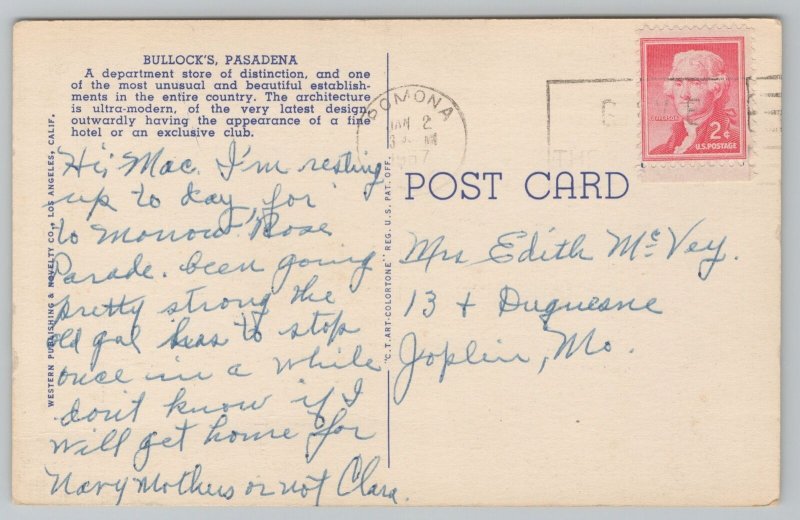 BULLOCK'S, PASADENA
A department store of distinction, and one
of the most unusual and beautiful establish-
ments in the entire country. The architecture
is ultra-modern, of the very latest design,
outwardly having the appearance of a fine
hotel or an exclusive club.
Hi, Mac. I'm resting
up to day, for
to morrow Rose
Parade. been going
pretty strong the
old gal has to stop
once in a while
don't know if I
will get home for
Navy Mothers or not Clara.
WESTERN PUBLISHING & NOVELTY CO., LOS ANGELES, CALIF.
"C.T. ART-COLORTONE" REG. U.S. PAT. OFF.
POMONA
JAN 2
POST CARD
JEFFERSON
2¢
U.S. POSTAGE
Mrs Edith McVey.
13 & Duquesne
Joplin, Mo.